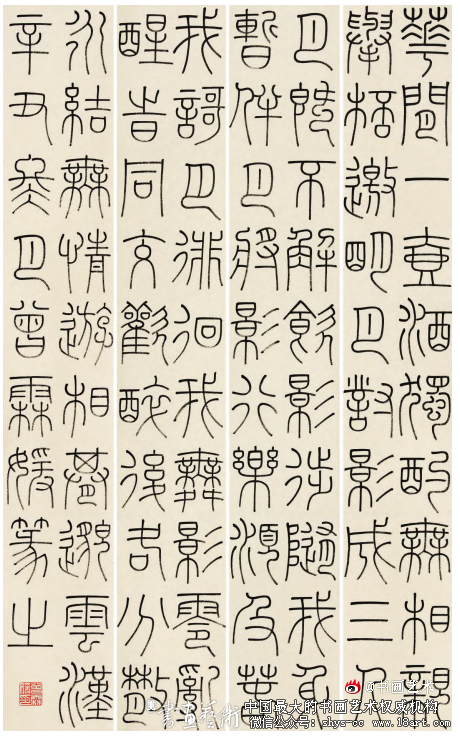 華間一壺酒獨酌無相親
舉桮邀明月對影成三人
月既不解飲影徒隨我身
暫伴月將影行樂須及春
我謌月徘徊我舞影零亂
醒旹同交歡醉後各分散
永結無情遊相期邈雲漢
辛丑月曾霖媛篆之
@书画艺术
中国最大的书画艺术权威机构
微信公众号: shys-cc www.18art.com
書畫藝術